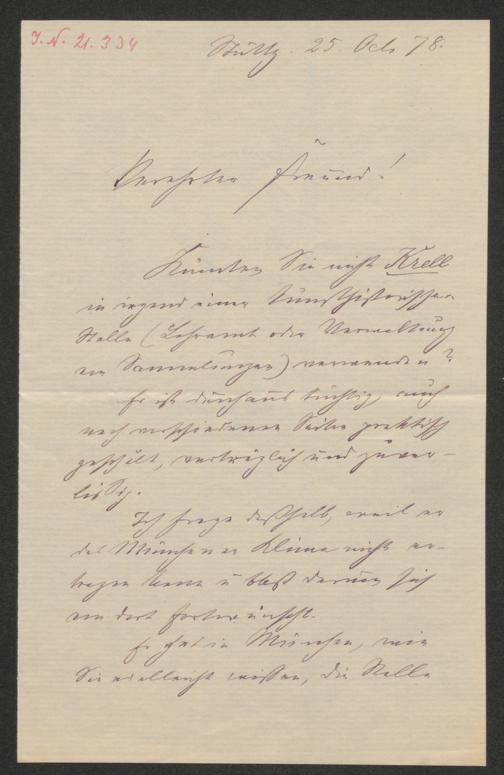 J. N. 21.334
Stuttg. 25. Octb 78.
Verehrter Freund!
Könnten Sie nicht Krell
in irgend einer kunsthistorischen
Stelle (Lehramt oder Verwaltung
von Sammlungen) verwenden?
Er ist durchaus tüchtig, auch
nach verschiedenen Seiten praktisch
geschult, verträglich und zuver-
lässig.
Ich frage deßhalb, weil er
das Münchener Klima nicht er-
tragen kann u bloß darum sich
von dort fortwünscht.
Er hat in München, wie
Sie vielleicht wissen, die Stelle